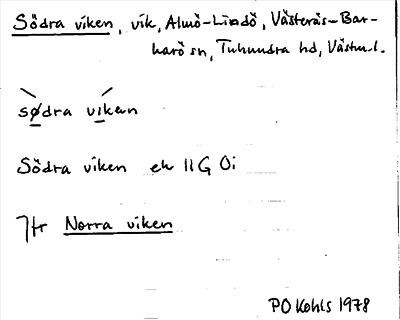 Södra viken, vik, Almö-Lindö, Västerås-Bar-
karö sn, Tuhundra hd, Västml.
sødra vikan
Södra viken ek 11G 0i
Jfr Norra viken
PO Kohls 1978